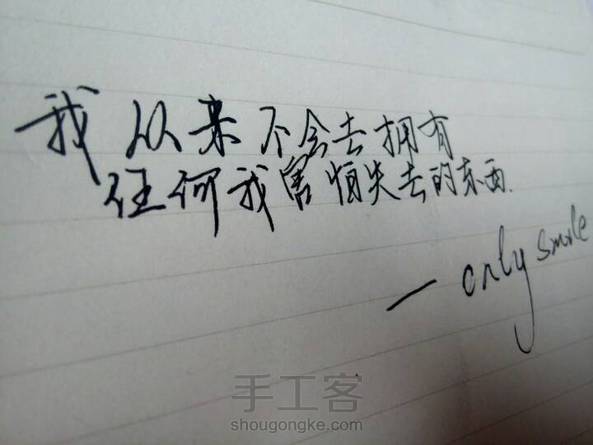 我从来不会去拥有
任何我害怕失去的东西.
— only smile
手工客
shougongke.com